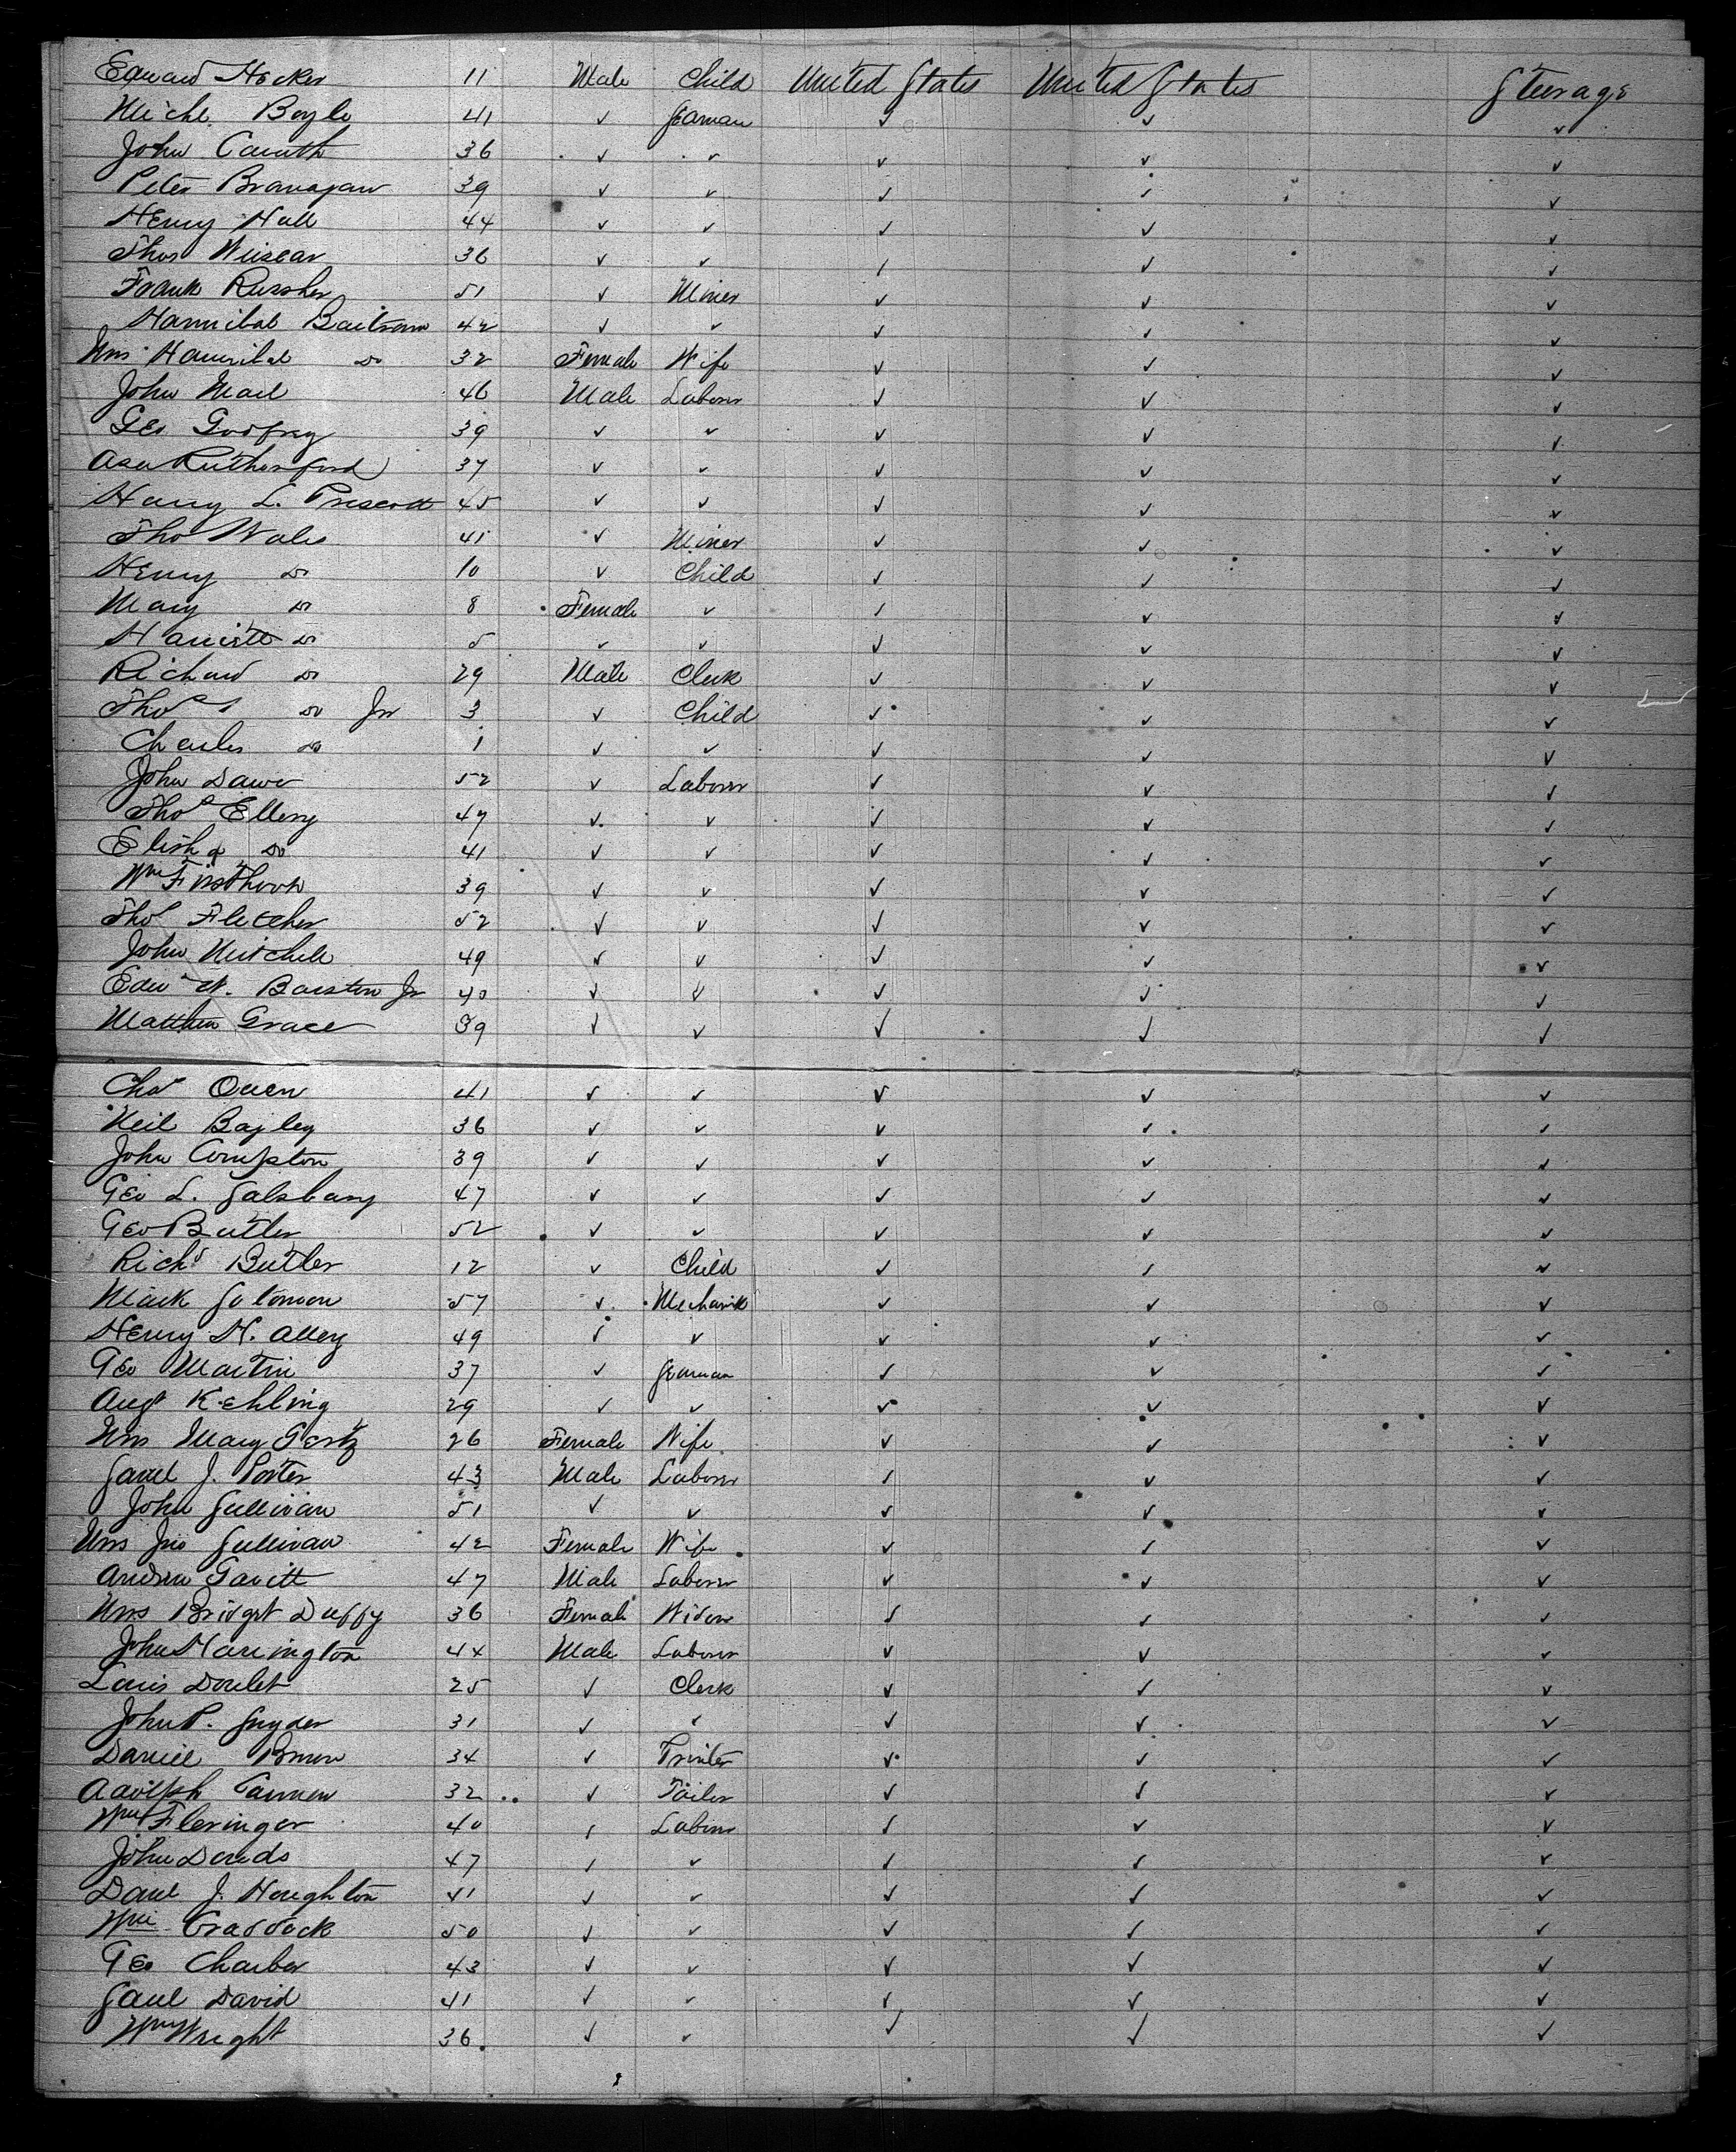 Edward Hocker 11 Male Child United States United States Steerage
Michl. Boyle 41 ✓ Seaman ✓ ✓ ✓
John Caruth 36 ✓ ✓ ✓ ✓ ✓
Peter Branagan 39 ✓ ✓ ✓ ✓ ✓
Henry Hall 44 ✓ ✓ ✓ ✓ ✓
Thos 36 ✓ ✓ ✓ ✓ ✓
Frank 51 ✓ Miner ✓ ✓ ✓
Hannibal 42 ✓ ✓ ✓ ✓ ✓
Mrs Hannibal Do 32 Female Wife ✓ ✓ ✓
John 46 Male Laborer ✓ ✓ ✓
Geo Godfrey 39 ✓ ✓ ✓ ✓ ✓
Asa Rutherford 37 ✓ ✓ ✓ ✓ ✓
Harry L. Prescott 45 ✓ ✓ ✓ ✓ ✓
Tho Wales 41 ✓ Miner ✓ ✓ ✓
Henry Do 10 ✓ Child ✓ ✓ ✓
Mary Do 8 Female ✓ ✓ ✓ ✓
Do 5 ✓ ✓ ✓ ✓ ✓
Richard Do 29 Male Clerk ✓ ✓ ✓
Thos Do Jr 3 ✓ Child ✓ ✓ ✓
Charles Do 1 ✓ ✓ ✓ ✓ ✓
John 52 ✓ Laborer ✓ ✓ ✓
Thos Ellery 47 ✓ ✓ ✓ ✓ ✓
Elisha Do 41 ✓ ✓ ✓ ✓ ✓
Wm Firsthook 39 ✓ ✓ ✓ ✓ ✓
Thos Fletcher 52 ✓ ✓ ✓ ✓ ✓
John Mitchell 49 ✓ ✓ ✓ ✓ ✓
Edw W. Barstow Jr 40 ✓ ✓ ✓ ✓ ✓
Matthew Grace 39 ✓ ✓ ✓ ✓ ✓
Chas Owen 41 ✓ ✓ ✓ ✓ ✓
Neil Bagley 36 ✓ ✓ ✓ ✓ ✓
John Compston 39 ✓ ✓ ✓ ✓ ✓
Geo L. Salsbury 47 ✓ ✓ ✓ ✓ ✓
Geo Butler 52 ✓ ✓ ✓ ✓ ✓
Richd Butler 12 ✓ Child ✓ ✓ ✓
Mark Solomon 57 ✓ Mechanik ✓ ✓ ✓
Henry H. Alley 49 ✓ ✓ ✓ ✓ ✓
Geo Martin 37 ✓ Seaman ✓ ✓ ✓
Augt Kehling 29 ✓ ✓ ✓ ✓ ✓
Mrs Mary Gertz 26 Female Wife ✓ ✓ ✓
Saml J. Porter 43 Male Laborer ✓ ✓ ✓
John Sullivan 51 ✓ ✓ ✓ ✓ ✓
Mrs Jno Sullivan 42 Female Wife ✓ ✓ ✓
Andrew Gavitt 47 Male Laborer ✓ ✓ ✓
Mrs Bridget Duffy 36 Female Widow ✓ ✓ ✓
John Harrington 44 Male Laborer ✓ ✓ ✓
Louis Doulet 25 ✓ Clerk ✓ ✓ ✓
John P. Snyder 31 ✓ ✓ ✓ ✓ ✓
Daniel Brown 34 ✓ Printer ✓ ✓ ✓
Adolph 32 ✓ Tailor ✓ ✓ ✓
Wm Fleringer 40 ✓ Laborer ✓ ✓ ✓
John Dowds 47 ✓ ✓ ✓ ✓ ✓
Danl J. Houghton 41 ✓ ✓ ✓ ✓ ✓
Wm Craddock 50 ✓ ✓ ✓ ✓ ✓
Geo 43 ✓ ✓ ✓ ✓ ✓
Saml David 41 ✓ ✓ ✓ ✓ ✓
Wm Wright 36 ✓ ✓ ✓ ✓ ✓